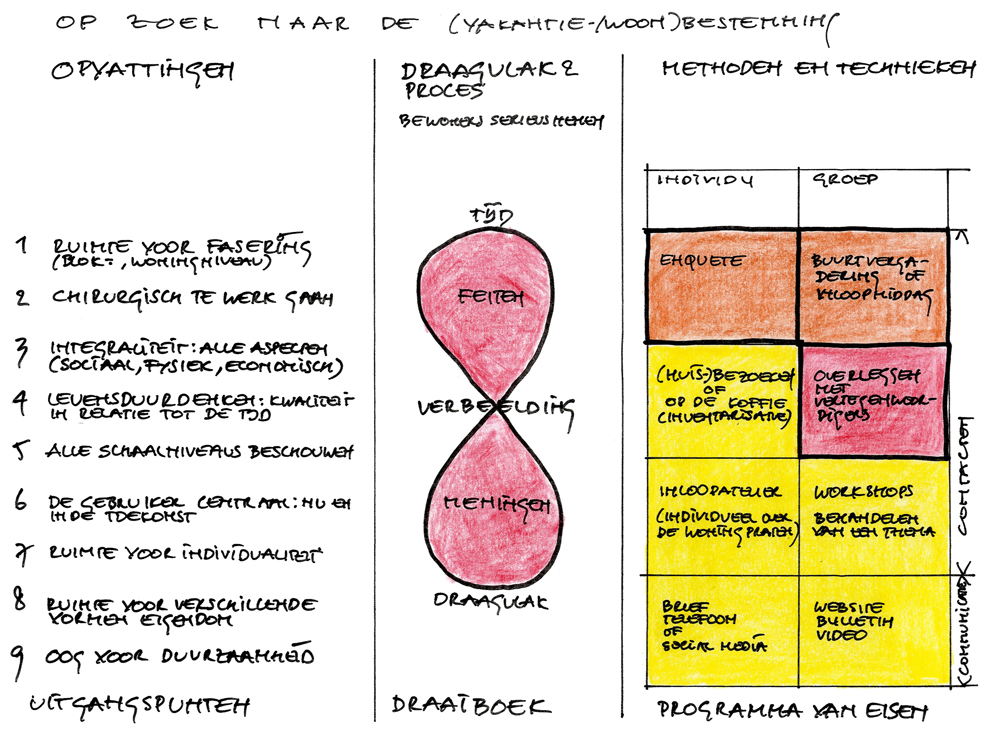 OP ZOEK NAAR DE (VAKANTIE-/WOON)BESTEMMING
OPVATTINGEN
1 RUIMTE VOOR FASERING
(BLOK-, WONINGNIVEAU)
2 CHIRURGISCH TE WERK GAAN
3 INTEGRALITEIT: ALLE ASPEKTEN
(SOCIAAL, FYSIEK, ECONOMISCH)
4 LEVENSDUURDENKEN: KWALITEIT
IN RELATIE TOT DE TIJD
5 ALLE SCHAALNIVEAUS BESCHOUWEN
6 DE GEBRUIKER CENTRAAL: NU EN
IN DE TOEKOMST
7 RUIMTE VOOR INDIVIDUALITEIT
8 RUIMTE VOOR VERSCHILLENDE
VORMEN EIGENDOM
9 OOG VOOR DUURZAAMHEID
UITGANGSPUNTEN
DRAAGVLAK &
PROCES
BEWONERS SERIEUS NEMEN
TIJD
FEITEN
VERBEELDING
MENINGEN
DRAAGVLAK
DRAAIBOEK
METHODEN EN TECHNIEKEN
INDIVIDU
GROEP
ENQUETE
BUURTVERGA-
DERING OF
INLOOPMIDDAG
(HUIS-)BEZOEKEN
OF
OP DE KOFFIE
(INVENTARISATIE)
OVERLEGGEN
MET
VERTEGENWOOR-
DIGERS
INLOOPATELIER
(INDIVIDUEEL OVER
DE WONING PRATEN)
WORKSHOPS
BEHANDELEN
VAN EEN THEMA
BRIEF
TELEFOON
OF
SOCIAL MEDIA
WEBSITE
BULLETIN
VIDEO
CONTACTEN
PROGRAMMA VAN EISEN